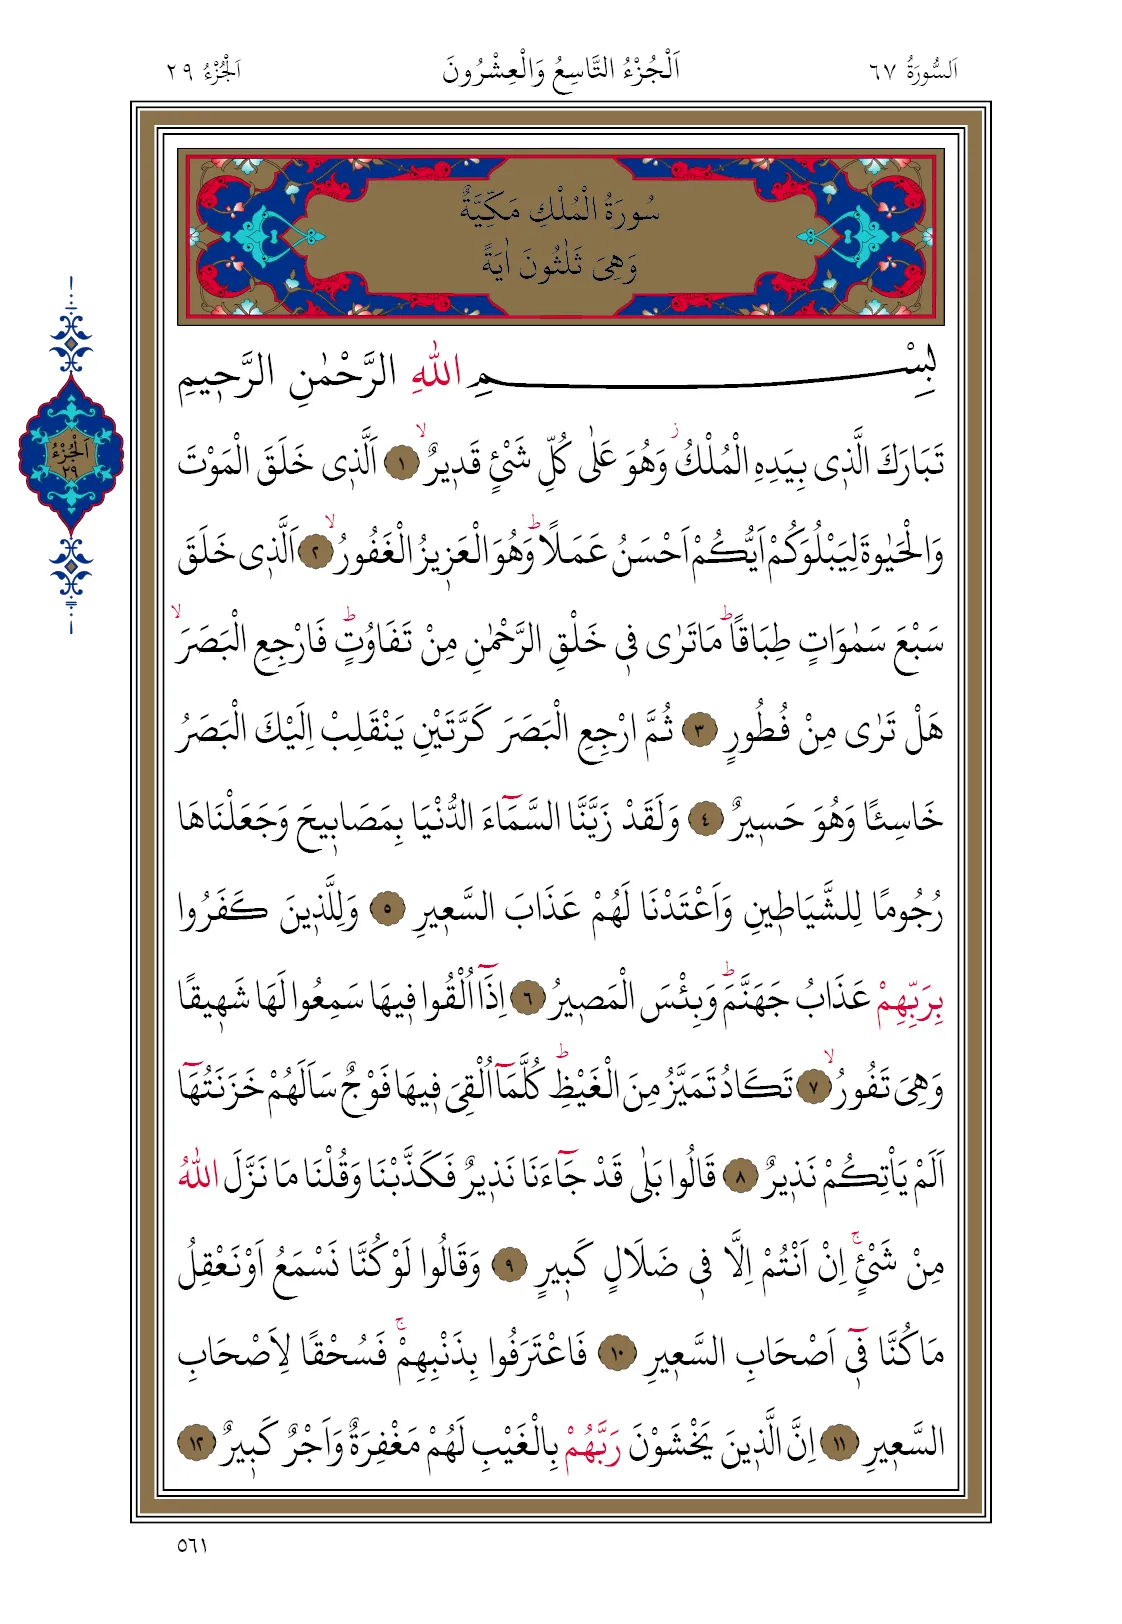 اَلسُّورَةُ ٦٧
اَلْجُزْءُ التَّاسِعُ وَالْعِشْرُونَ
اَلْجُزْءُ ٢٩
سُورَةُ الْمُلْكِ مَكِّيَّةٌ
وَهِىَ ثَلٰثُونَ اٰيَةً
بِسْمِ اللّٰهِ الرَّحْمٰنِ الرَّحٖيمِ
تَبَارَكَ الَّذٖى بِيَدِهِ الْمُلْكُؗ وَهُوَ عَلٰى كُلِّ شَیْءٍ قَدٖيرٌۙ ١ اَلَّذٖى خَلَقَ الْمَوْتَ
وَالْحَيٰوةَ لِيَبْلُوَكُمْ اَيُّكُمْ اَحْسَنُ عَمَلًاؕ وَهُوَ الْعَزٖيزُ الْغَفُورُۙ ٢ اَلَّذٖى خَلَقَ
سَبْعَ سَمٰوَاتٍ طِبَاقًاؕ مَا تَرٰى فٖى خَلْقِ الرَّحْمٰنِ مِنْ تَفَاوُتٍؕ فَارْجِعِ الْبَصَرَۙ
هَلْ تَرٰى مِنْ فُطُورٍ ٣ ثُمَّ ارْجِعِ الْبَصَرَ كَرَّتَيْنِ يَنْقَلِبْ اِلَيْكَ الْبَصَرُ
خَاسِئًا وَهُوَ حَسٖيرٌ ٤ وَلَقَدْ زَيَّنَّا السَّمَٓاءَ الدُّنْيَا بِمَصَابٖيحَ وَجَعَلْنَاهَا
رُجُومًا لِلشَّيَاطٖينِ وَاَعْتَدْنَا لَهُمْ عَذَابَ السَّعٖيرِ ٥ وَلِلَّذٖينَ كَفَرُوا
بِرَبِّهِمْ عَذَابُ جَهَنَّمَؕ وَبِئْسَ الْمَصٖيرُ ٦ اِذَٓا اُلْقُوا فٖيهَا سَمِعُوا لَهَا شَهٖيقًا
وَهِىَ تَفُورُۙ ٧ تَكَادُ تَمَيَّزُ مِنَ الْغَيْظِؕ كُلَّمَٓا اُلْقِىَ فٖيهَا فَوْجٌ سَاَلَهُمْ خَزَنَتُهَٓا
اَلَمْ يَاْتِكُمْ نَذٖيرٌ ٨ قَالُوا بَلٰى قَدْ جَٓاءَنَا نَذٖيرٌ فَكَذَّبْنَا وَقُلْنَا مَا نَزَّلَ اللّٰهُ
مِنْ شَیْءٍۚ اِنْ اَنْتُمْ اِلَّا فٖى ضَلَالٍ كَبٖيرٍ ٩ وَقَالُوا لَوْ كُنَّا نَسْمَعُ اَوْ نَعْقِلُ
مَا كُنَّا فٖٓى اَصْحَابِ السَّعٖيرِ ١٠ فَاعْتَرَفُوا بِذَنْبِهِمْۚ فَسُحْقًا لِاَصْحَابِ
السَّعٖيرِ ١١ اِنَّ الَّذٖينَ يَخْشَوْنَ رَبَّهُمْ بِالْغَيْبِ لَهُمْ مَغْفِرَةٌ وَاَجْرٌ كَبٖيرٌ ١٢
اَلْجُزْءُ
٢٩
٥٦١